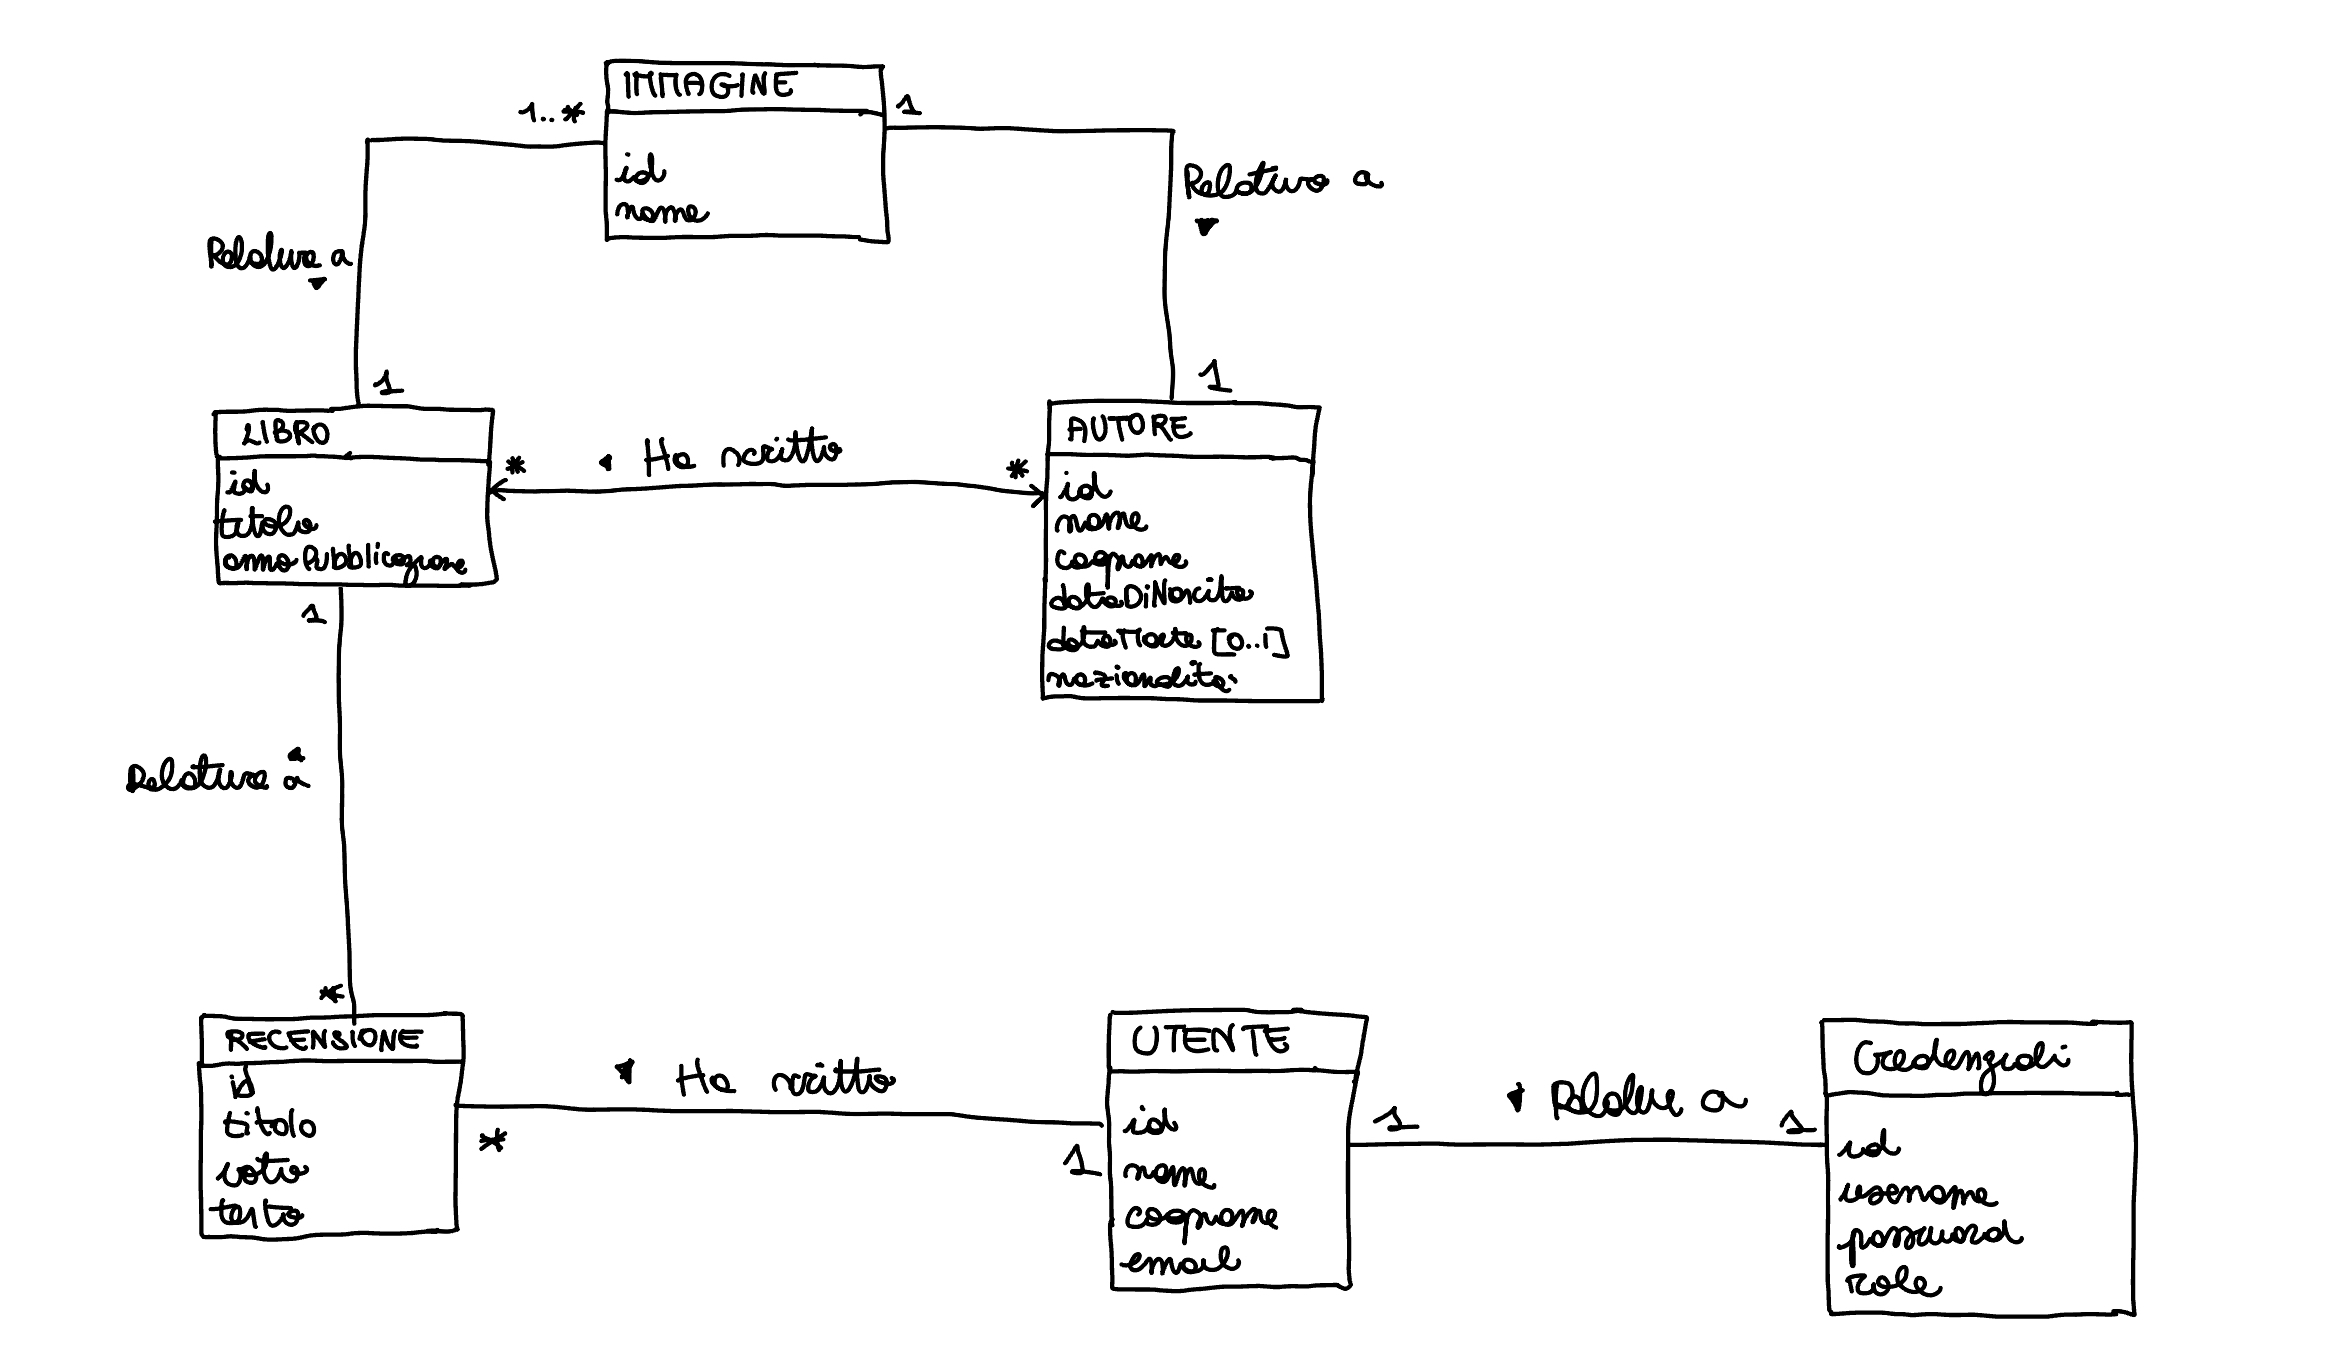 IMMAGINE
1..*
1
id
nome
Relativo a
Relativa a
1
1
LIBRO
*
Ha scritto
*
AUTORE
id
titolo
annoPubblicazione
id
nome
cognome
dataDiNascita
dataMorte [0..1]
nazionalità
1
Relativa a
*
RECENSIONE
id
titolo
voto
testo
Ha scritto
*
1
UTENTE
id
nome
cognome
email
1
Relative a
1
Credenziali
id
username
password
role